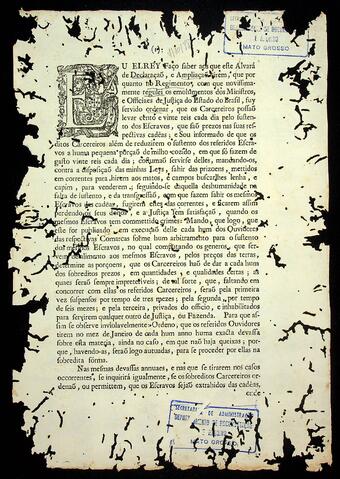 EU ELREY Faço saber aos que este Alvará
de Declaraçaõ, e Ampliaçaõ virem, que por
quanto no Regimento, com que novissima-
mente regulei os emolumentos dos Ministros,
e Officiaes de Justiça do Estado do Brasil, fuy
servido ordenar, que os Carcereiros possaõ
levar cento e vinte reis cada dia pelo susten-
to dos Escravos, que saõ prezos nas suas res-
pectivas cadêas; e Sou informado de que os
ditos Carcereiros além de reduzirem o sustento dos referidos Escra-
vos a huma pequena porçaõ de milho cozido, em que só fazem de
gasto vinte reis cada dia; costumaõ servirse delles, mandando-os,
contra a disposiçaõ das minhas Leys, sahir das prizoens, mettidos
em correntes para hirem aos matos, e campos buscarlhes lenha, e
capim, para venderem; seguindo-se daquella deshumanidade na
falta de sustento, e da transgressaõ, com que fazem sahir os mesmos
Escravos das cadêas, fugirem estes das correntes, e ficarem assim
perdendo-os seus donos, e a Justiça sem satisfaçaõ, quando os
mesmos Escravos tem commettido crimes: Mando, que logo, que
este for publicado em execuçaõ delle cada hum dos Ouvidores
das respectivas Comarcas forme hum arbitramento para o sustento
dos mesmos Escravos, no qual constituindo os generos, que ser-
vem de alimento aos mesmos Escravos, pelos preços das terras,
determine as porçoens, que os Carcereiros haõ de dar a cada hum
dos sobreditos prezos, em quantidades, e qualidades certas; as
quaes seraõ sempre impreteriveis; de tal sorte, que, faltando em
concorrer com ellas os referidos Carcereiros, seraõ pela primeira
vez suspensos por tempo de tres mezes; pela segunda por tempo
de seis mezes; e pela terceira, privados do officio, e inhabilitados
para servirem qualquer outro de Justiça, ou Fazenda. Para que as-
sim se observe inviolavelmente: Ordeno, que os referidos Ouvidores
tirem no mez de Janeiro de cada hum anno huma exacta devassa
sobre esta materia, ainda no caso, em que naõ haja queixas; por-
que, havendo-as, seraõ logo autuadas, para se proceder por ellas na
sobredita fórma.
Nas mesmas devassas annuaes, e nas que se tirarem nos casos
occorrentes, se inquirirá igualmente, se os sobreditos Carcereiros or-
denaõ, ou permittem, que os Escravos sejaõ extrahidos das cadêas,
MATO GROSSO
SECRETARIA DE ADMINISTRA
MATO GROSSO